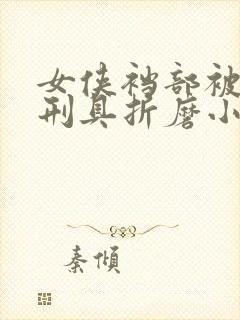 女侠裆部被
刑具折磨小
秦倾